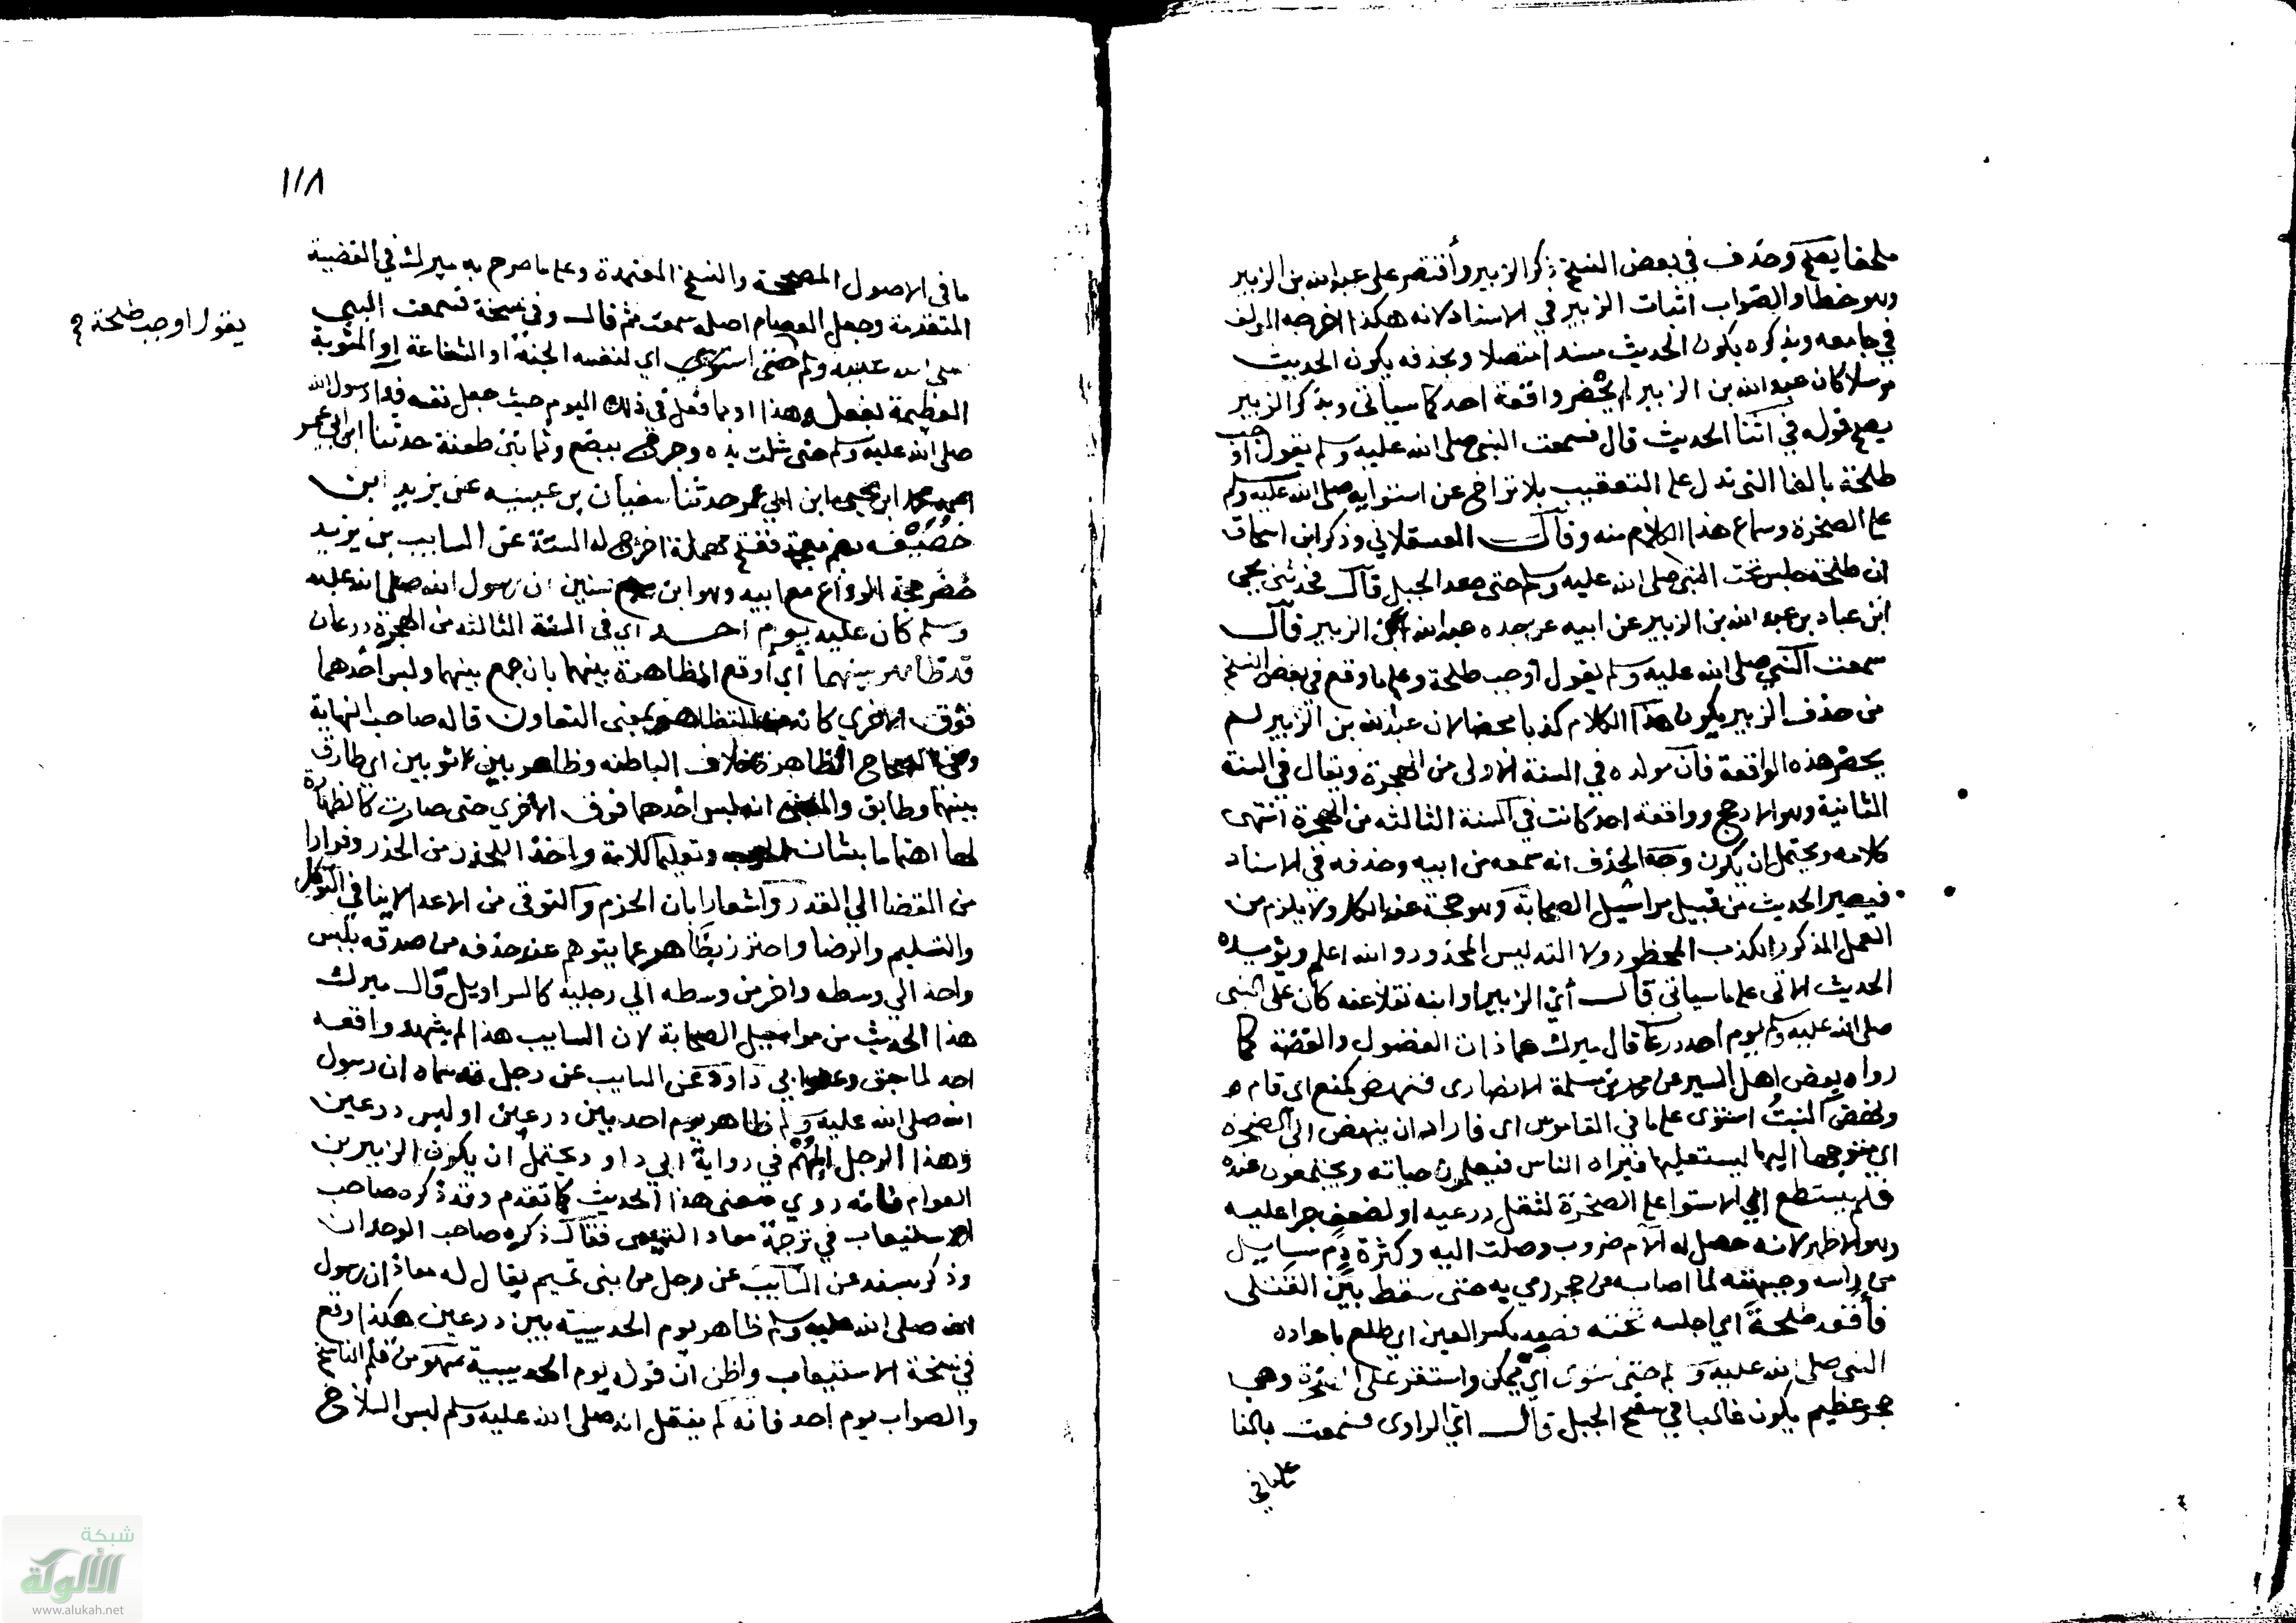 ملحقا بصح وحذف في بعض النسخ ذكر الزبير وأقتصر على عبد الله بن الزبير
وهو خطا والصواب اثبات الزبير في الاسناد لانه هكذا اخرجه المولف
في جامعه وبذكره يكون الحديث مسندا متصلا وبحذفه يكون الحديث
مرسلا كان عبد الله بن الزبير لم يحضر واقعة احد كما سياتي وبذكر الزبير
يصح قوله في اثنا الحديث قال فسمعت النبي صلى الله عليه وسلم يقول اوجب
طلحة بالفا التي تدل على التعقيب بلا تراخ عن استوايه صلى الله عليه وسلم
على الصخرة وسماع هذا الكلام منه وقال العسقلاني وذكر ابن اسحاق
ان طلحة جلس تحت النبي صلى الله عليه وسلم حتى صعد الجبل قال فحدثني يحيى
ابن عباد بن عبد الله بن الزبير عن ابيه عن جده عبد الله عن الزبير قال
سمعت النبي صلى الله عليه وسلم يقول اوجب طلحة وعلى ما وقع في بعض النسخ
من حذف الزبير يكون هذا الكلام كذبا محضا لان عبد الله بن الزبير لم
يحضر هذه الواقعة فان مولده في السنة الاولى من الهجرة ويقال في السنة
الثانية وهو الارجح وواقعة احد كانت في السنة الثالثه من الهجرة انتهى
كلامه ويحتمل ان يكون وجه الحذف انه سمعه من ابيه وحذفه في الاسناد
فيصير الحديث من قبيل مراسيل الصحابة وهو حجة عند الكل ولا يلزم من
العمل المذكور الكذب المحظور ولا التدليس المحذور والله اعلم ويؤيده
الحديث الاتي على ما سياتي قال أي الزبير او ابنه نقلا عنه كان على النبي
صلى الله عليه وسلم يوم احد درعا قال ميرك هما ذات الفضول والفضة كما
رواه بعض اهل السير عن محمد بن مسلمة الانصارى فنهض كمنع اى قام
ونهض النبت استوى على ما في القاموس اى فاراد ان ينهض الى الصخره
اي متوجها اليها ليستعليها فيراه الناس فيعلمون حياته ويجتمعون عنده
فلم يستطع اي الاستوا على الصخرة لثقل درعيه او لضعف جرا عليه
وهو الاظهر لانه حصل له الام ضروب وصلت اليه وكثرة دم سايل
من راسه وجبهته لما اصابه من حجر رمي به حتى سقط بين القتلى
فأقعد طلحة اي اجلسه تحته فصعد بكسر العين اي طلع باعداده
النبي صلى الله عليه وسلم حتى ستوى اي تمكن واستقر على الصخرة وهي
حجر عظيم يكون غالبا في سفح الجبل قال اي الراوى فسمعت بالفا
على ما في
١١٨
ما في الاصول المصححة والنسخ المعتمدة وعلى ما صرح به ميرك في القضية
المتقدمة وجعل العصام اصله سمعت ثم قال وفي نسخة فسمعت النبي
صلى الله عليه وسلم حتى استوى اي لنفسه الجنة او الشفاعة او المثوبة
يقول اوجب طلحة
العظيمة بفعله هذا او بما فعل في ذلك اليوم حيث جعل نفسه فدا رسول الله
صلى الله عليه وسلم حتى شلت يده وجرح ببضع وثمانين طعنة حدثنا ابن ابي عمر
محمد ابن يحيى ابن ابي عمر حدثنا سفيان بن عيينه عن يزيد ابن
خصيفه بضم معجمة ففتح مهملة اخرج له الستة عن السايب بن يزيد
حضر حجة الوداع مع ابيه وهو ابن سبع سنين ان رسول الله صلى الله عليه
وسلم كان عليه يوم احد اي في السنة الثالثه من الهجرة درعان
قد ظاهر بينهما أي أوقع المظاهرة بينهما بان جمع بينهما ولبس احدهما
فوق الاخرى كانه من التظاهر بمعنى التعاون قاله صاحب النهاية
وفي الصحاح الظاهرة خلاف الباطنه وظاهر بين ثوبين اي طارق
بينهما وطابق والمعنى انه لبس احدهما فوق الاخرى حتى صارت كالظهارة
لها اهتماما بشان الحرب وتعليما للامة واخذا للحذر من الحذر وفرارا
من القضا الى القدر واشعارا بان الحزم والتوقي من الاعدا لا ينافي التوكل
والتسليم والرضا واحترز بظاهر عما يتوهم عند حذفه من صدقه بلبس
واحد الى وسطه واخر من وسطه الى رجليه كالسراويل قال ميرك
هذا الحديث من مراسيل الصحابة لان السايب هذا لم يشهد واقعه
احد لما سبق وعند ابي داود عن السايب عن رجل قد سماه ان رسول
الله صلى الله عليه وسلم ظاهر يوم احد بين درعين او لبس درعين
وهذا الرجل المبهم في رواية ابي داود يحتمل ان يكون الزبير بن
العوام فانه روي معنى هذا الحديث كما تقدم وقد ذكره صاحب
الاستيعاب في ترجمة معاذ التيمي فقال ذكره صاحب الوحدان
وذكر بسنده عن السايب عن رجل من بني تميم يقال له معاذ ان رسول
الله صلى الله عليه وسلم ظاهر يوم الحديبية بين درعين هكذا وقع
في نسخة الاستيعاب واظن ان قوله يوم الحديبية سهو من قلم الناسخ
والصواب يوم احد فانه لم ينقل انه صلى الله عليه وسلم لبس السلاح
شبكة
الألوكة
www.alukah.net